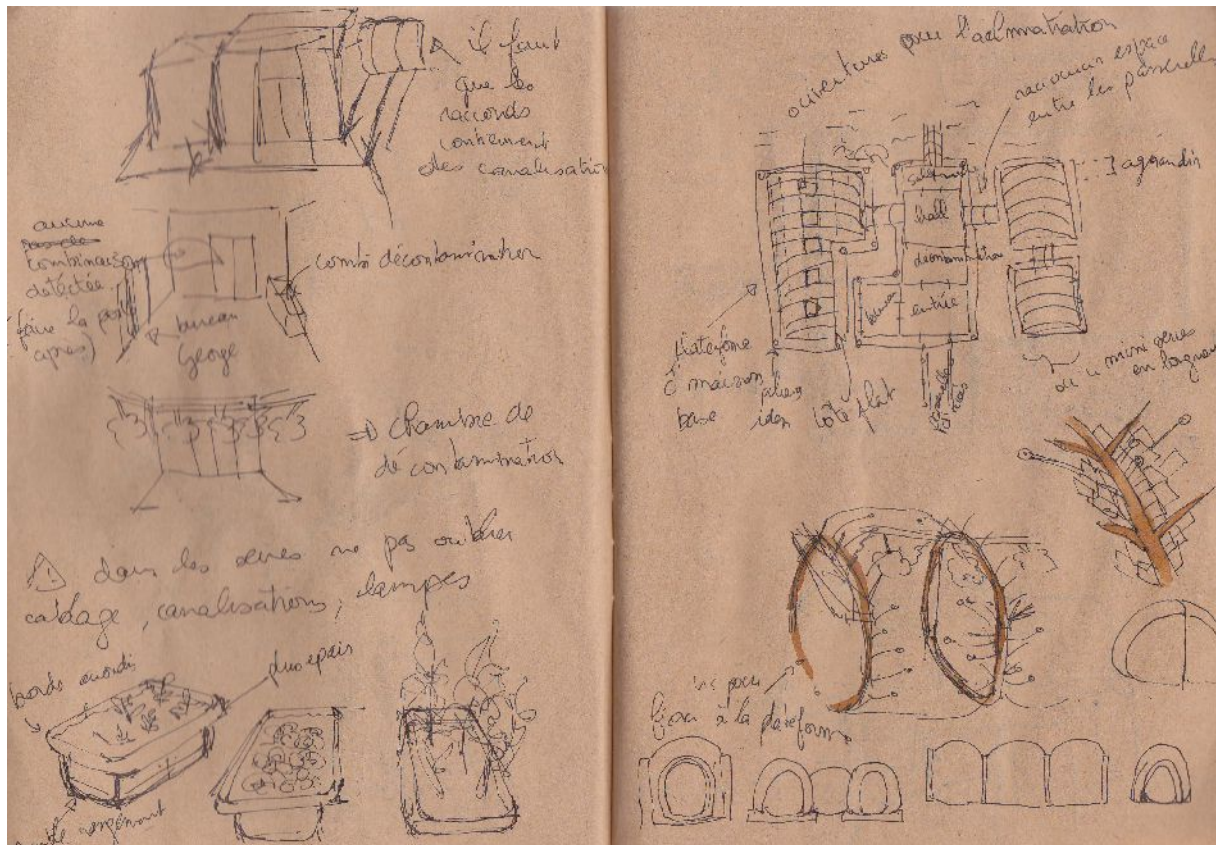 il faut
que les
raccords
contiennent
des canalisation
aucune
combinaison
détéctée
(faire la porte
après)
combi décontamination
bureau
George
=> chambre de
décontamination
dans les serres ne pas oublier
cablage, canalisations, lampes
bords arrondis
plus epais
ouvertures pour l'aclimatation
raccourcir espace
entre les passerelles
aggrandir
hall
décontamination
bureau
entrée
plateforme
6 maison
base iden
côté flat
mini serres
en longueur
vis pour
fixer à la plateforme